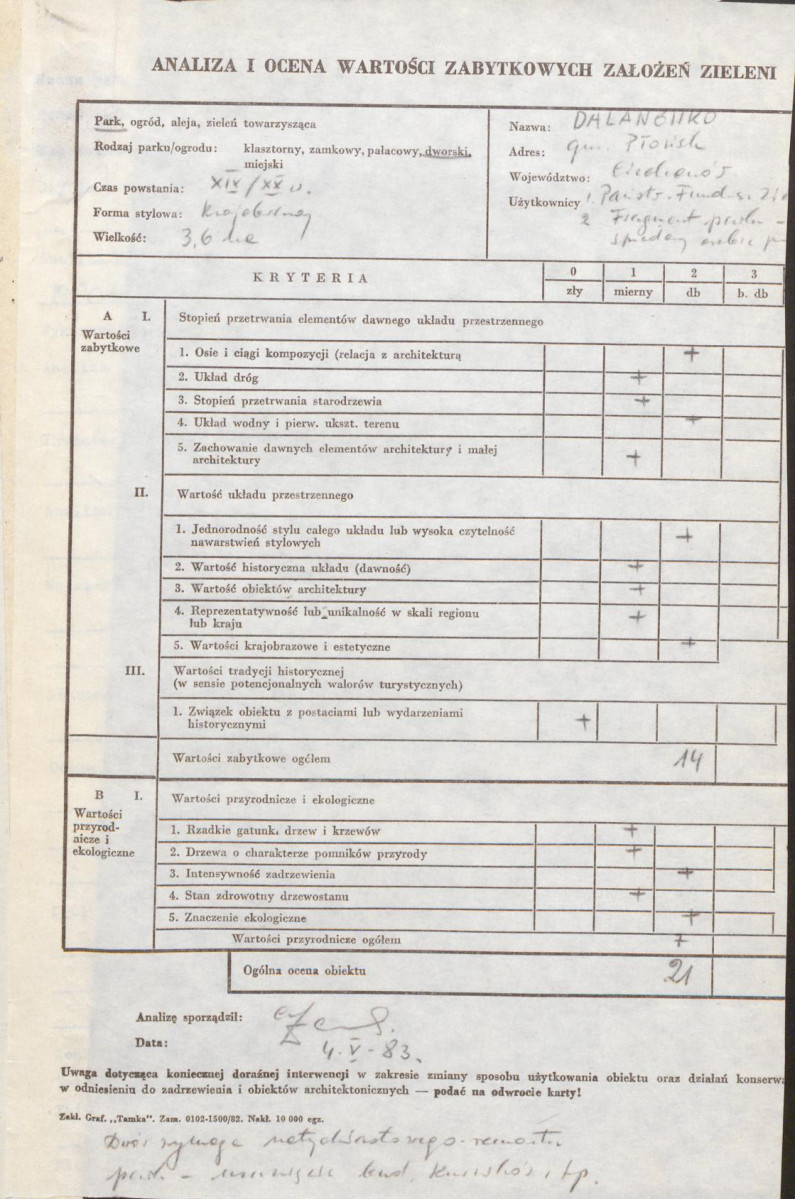 ANALIZA I OCENA WARTOŚCI ZABYTKOWYCH ZAŁOŻEŃ ZIELENI
Park, ogród, aleja, zieleń towarzysząca
Rodzaj parku/ogrodu: klasztorny, zamkowy, pałacowy, dworski,
miejski
Czas powstania: XIX/XX w.
Forma stylowa: Krajobrazowy
Wielkość: 3,6 ha
Nazwa:
Adres: gm. Płońsk
Województwo: Ciechanów
Użytkownicy 1. Państw. Fundusz
2 Fragment parku -
KRYTERIA
0 1 2 3
zły mierny db b. db
A I. Stopień przetrwania elementów dawnego układu przestrzennego
Wartości
zabytkowe
1. Osie i ciągi kompozycji (relacja z architekturą +
2. Układ dróg +
3. Stopień przetrwania starodrzewia +
4. Układ wodny i pierw. ukszt. terenu +
5. Zachowanie dawnych elementów architektury i małej
architektury +
II. Wartość układu przestrzennego
1. Jednorodność stylu całego układu lub wysoka czytelność
nawarstwień stylowych +
2. Wartość historyczna układu (dawność) +
3. Wartość obiektów architektury +
4. Reprezentatywność lub unikalność w skali regionu
lub kraju +
5. Wartości krajobrazowe i estetyczne +
III. Wartości tradycji historycznej
(w sensie potencjonalnych walorów turystycznych)
1. Związek obiektu z postaciami lub wydarzeniami
historycznymi +
Wartości zabytkowe ogółem 14
B I. Wartości przyrodnicze i ekologiczne
Wartości
przyrod-
nicze i
ekologiczne
1. Rzadkie gatunki drzew i krzewów +
2. Drzewa o charakterze pomników przyrody +
3. Intensywność zadrzewienia +
4. Stan zdrowotny drzewostanu +
5. Znaczenie ekologiczne +
Wartości przyrodnicze ogółem 7
Ogólna ocena obiektu 21
Analizę sporządził:
Data: 4.V-83.
Uwaga dotycząca koniecznej doraźnej interwencji w zakresie zmiany sposobu użytkowania obiektu oraz działań konserw
w odniesieniu do zadrzewienia i obiektów architektonicznych — podać na odwrocie karty!
Zakł. Graf. „Tamka". Zam. 0102-1500/82. Nakł. 10 000 egz.
Dwór wymaga natychmiastowego remontu
park - usunięcie bud, i tp.